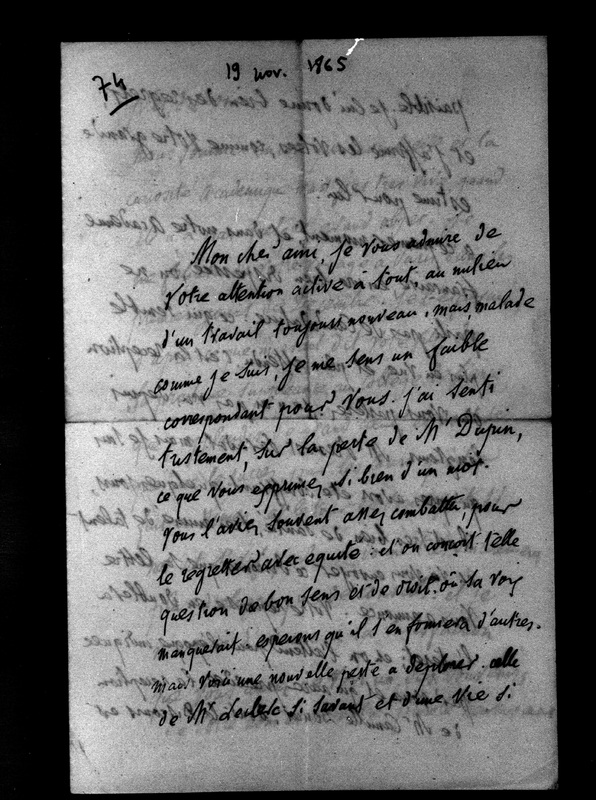 19 nov. 1865
74
Mon cher ami, je vous admire de
votre attention active à tout, au milieu
d'un travail toujours nouveau. mais, malade
comme je suis, je me sens un faible
correspondant pour vous. j'ai senti
tristement, sur la perte de Mr Dupin,
ce que vous exprimez si bien d'un mot.
vous l'aviez souvent assez combattu, pour
le regretter avec équité: et on conçoit telle
question de bon sens et de droit, où sa voix
manquerait. espérons qu'il s'en formera d'autres.
mais voici une nouvelle perte à déplorer. celle
de Mr. Leclerc si savant et d'une vie si